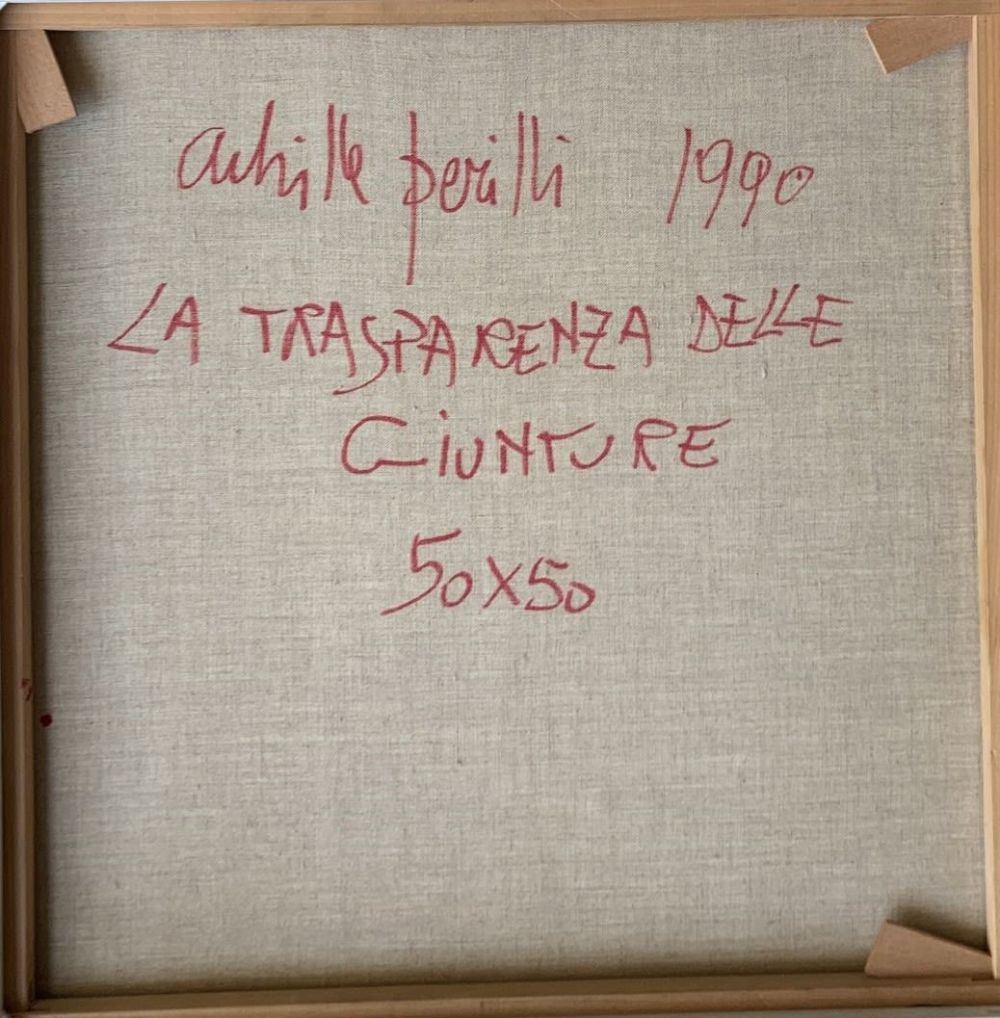 achille perilli 1990
LA TRASPARENZA DELLE
GIUNTURE
50X50